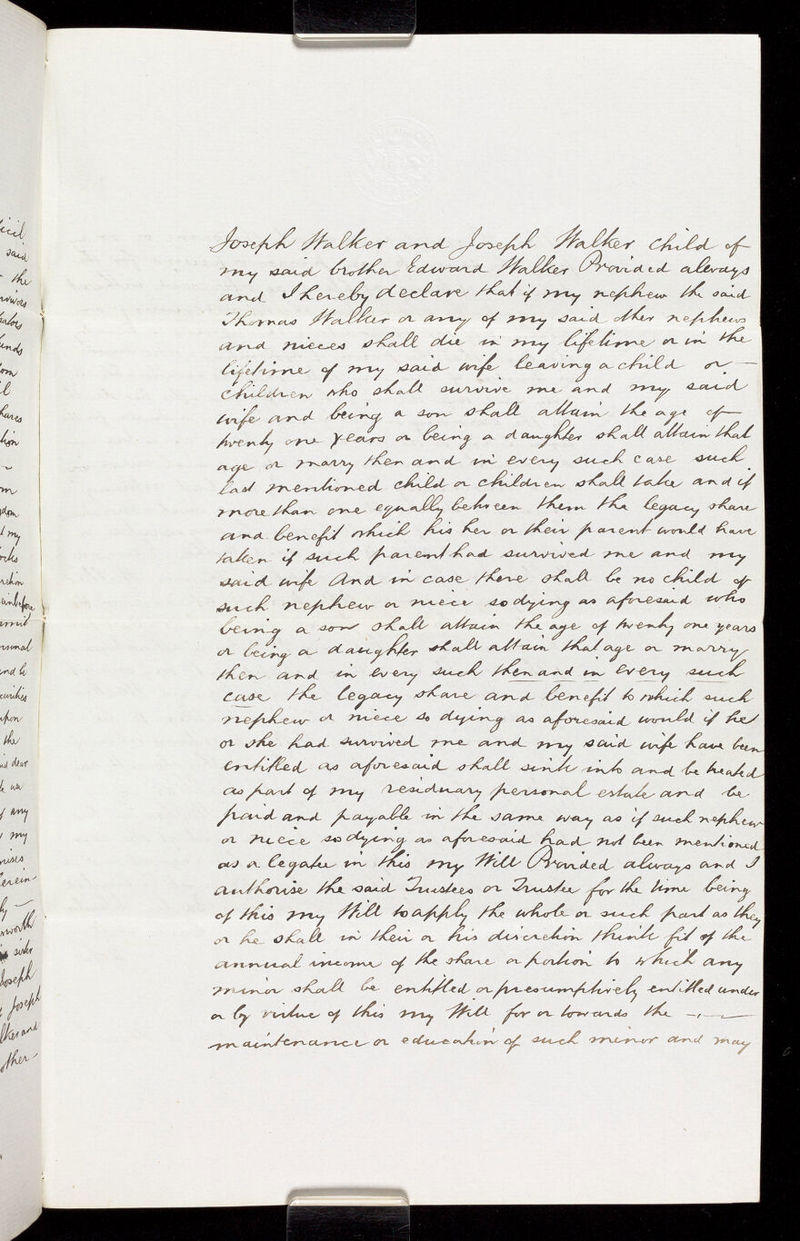 Joseph Walker and Joseph Walker child of
my said brother Edward Walker Provided always
and I hereby declare that if my nephew the said
Thomas Walker or any of my said other nephews
and nieces shall die in my lifetime or in the
lifetime of my said wife leaving a child or —
children who shall survive me and my said
wife and being a son shall attain the age of
twenty one years or being a daughter shall attain that
age or marry then and in every such case such
last mentioned child or children shall take and if
more than one equally between them the legacy share
and benefit which his her or their parent would have
taken if such parent had survived me and my
said wife And in case there shall be no child of
such nephew or niece so dying as aforesaid who
being a son shall attain the age of twenty one years
or being a daughter shall attain that age or marry
then and in every such then and in every such
case the legacy share and benefit to which such
nephew or niece so dying as aforesaid would if he
or she had survived me and my said wife have been
entitled as aforesaid shall sink into and be treated
as part of my residuary personal estate and be
paid and payable in the same way as if such nephew
or niece so dying as aforesaid had not been mentioned
as a legatee in this my Will Provided always and I
authorise the said Trustees or Trustee for the time being
of this my Will to apply the whole or such part as they
or he shall in their or his discretion think fit of the
annual income of the share or portion to which any
minor shall be entitled or presumptively entitled under
or by virtue of this my Will for or towards the —
maintenance or education of such minor and may